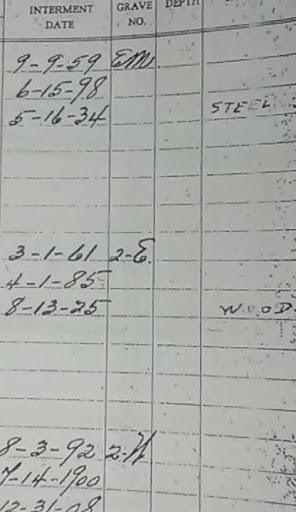 INTERMENT DATE GRAVE NO. DEPTH
9-9-59 EM.
6-15-98
5-16-34 STEEL
3-1-61 2-E.
4-1-85
8-13-25 WOOD
8-3-92 2-W
7-14-1900
12-31-08